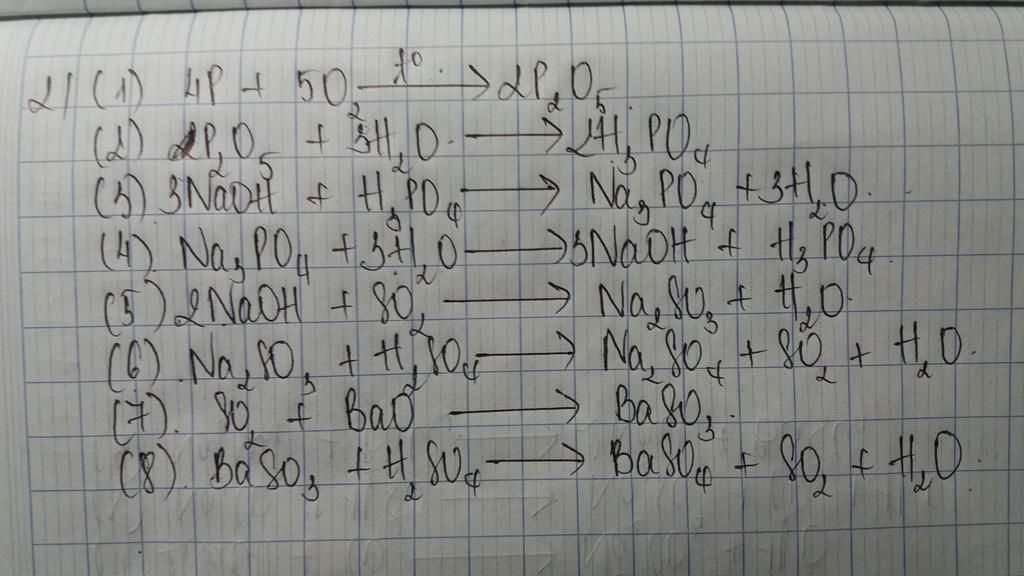 2) (1) 4P + 5O₂ —t⁰→ 2P₂O₅.
(2) P₂O₅ + 3H₂O → 2H₃PO₄
(3) 3NaOH + H₃PO₄ → Na₃PO₄ + 3H₂O.
(4) Na₃PO₄ + 3H₂O → 3NaOH + H₃PO₄.
(5) 2NaOH + SO₂ → Na₂SO₃ + H₂O.
(6) Na₂SO₃ + H₂SO₄ → Na₂SO₄ + SO₂ + H₂O.
(7) SO₂ + BaO → BaSO₃.
(8) BaSO₃ + H₂SO₄ → BaSO₄ + SO₂ + H₂O.